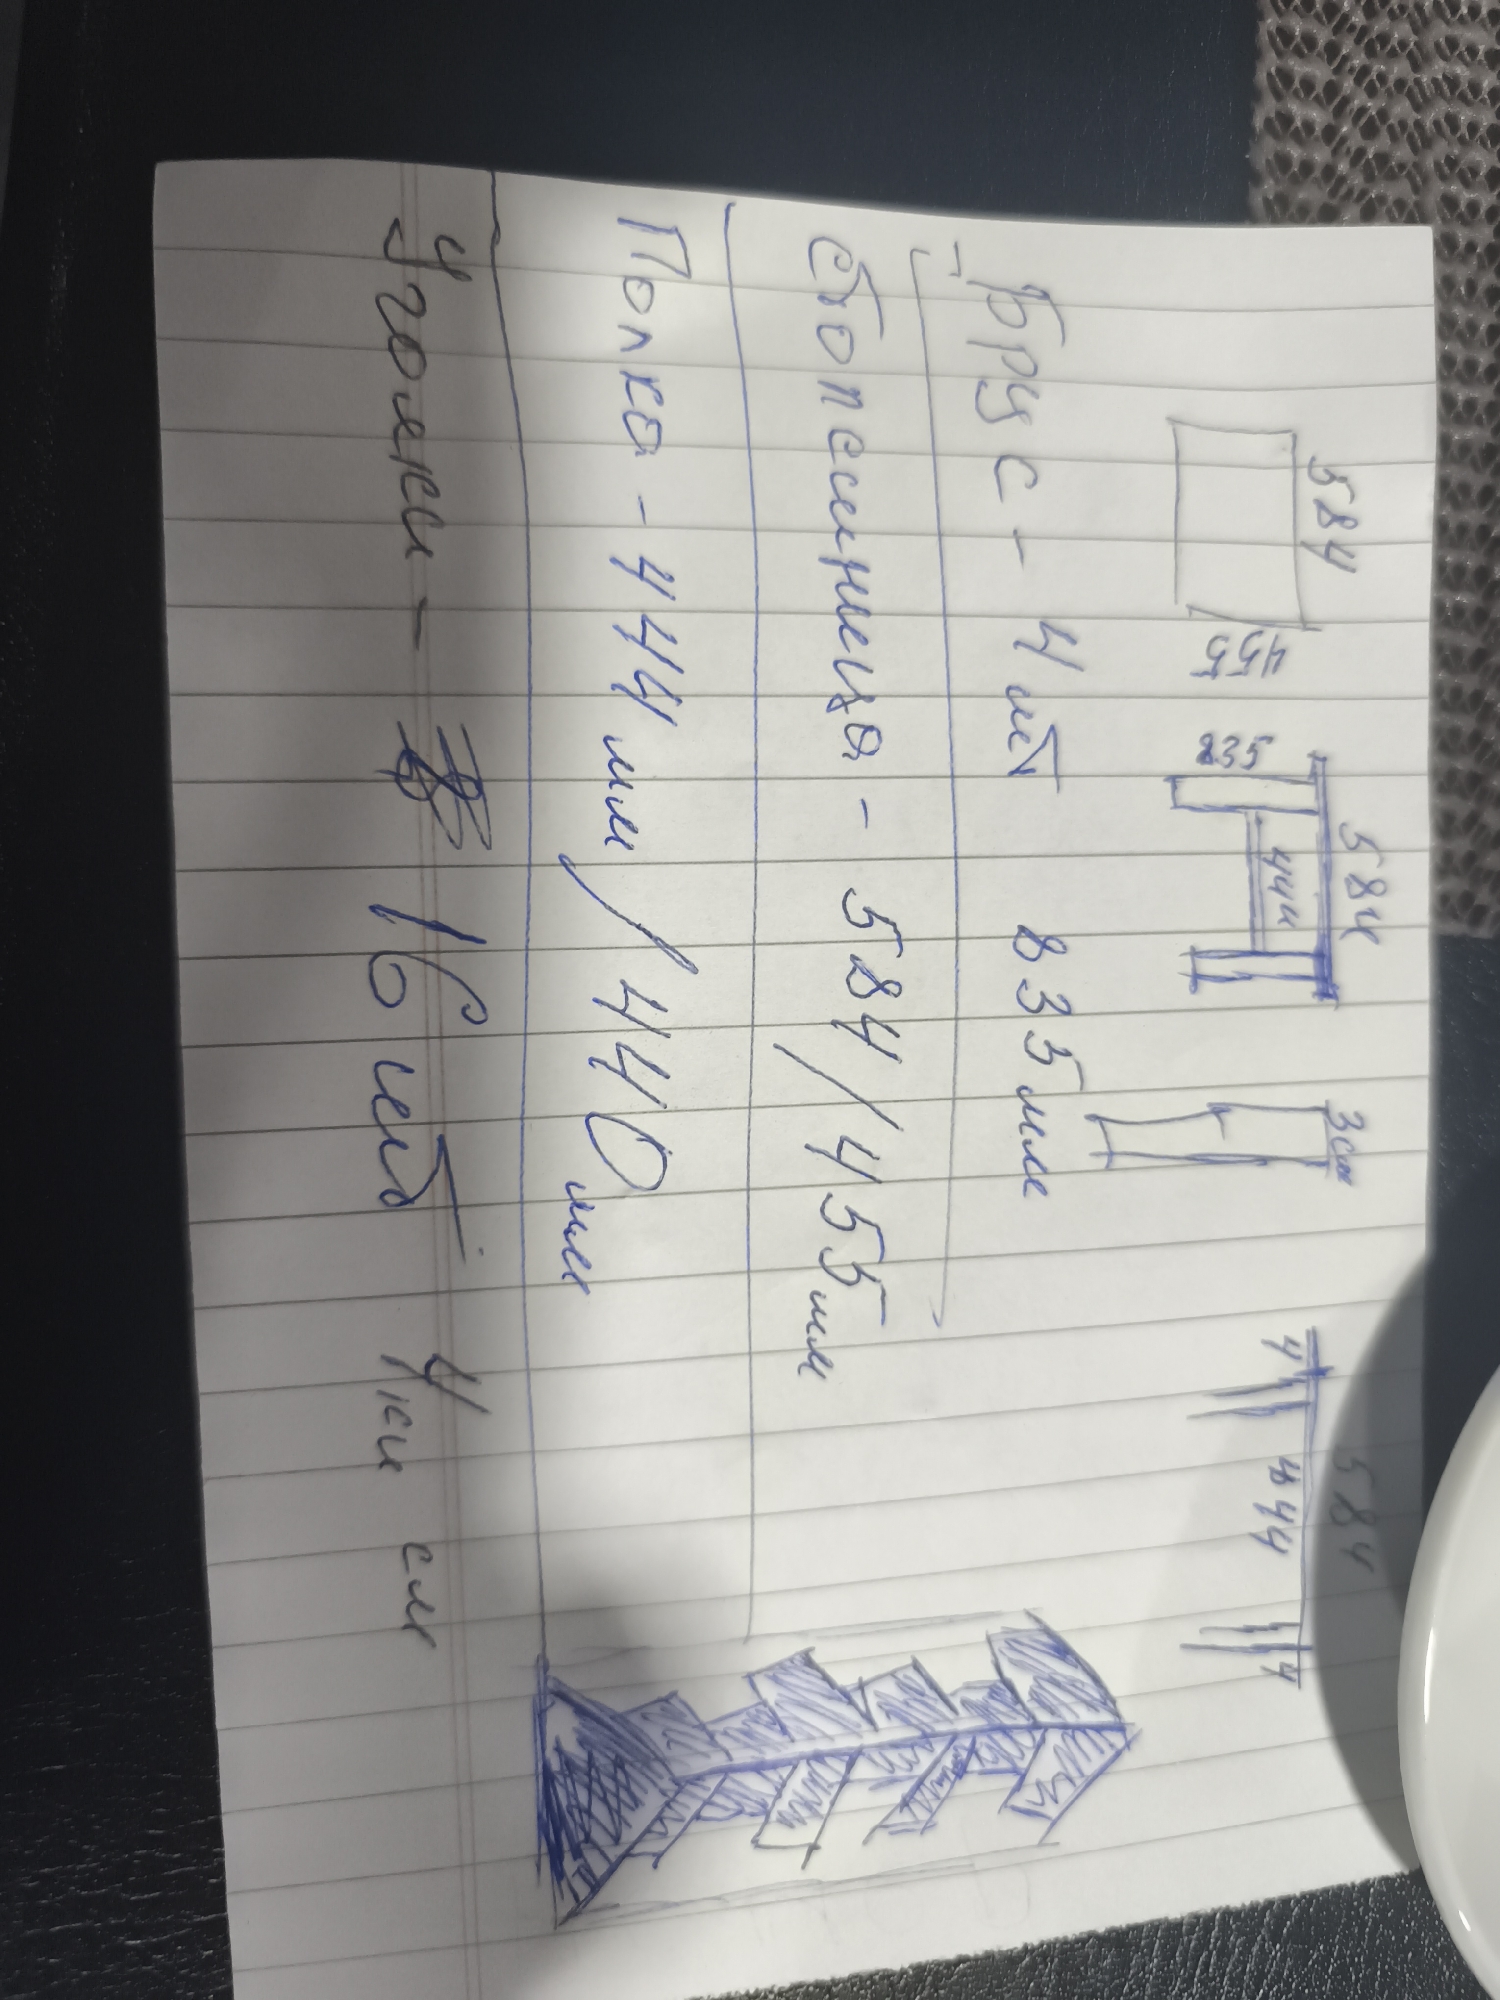 584
455
584
444
835
3 см
584
4 444 4
Брус - 4 шт 835 мм
Столешница - 584/455 мм
Полка - 444 мм / 440 мм
Уголки - 16 шт. 4 см